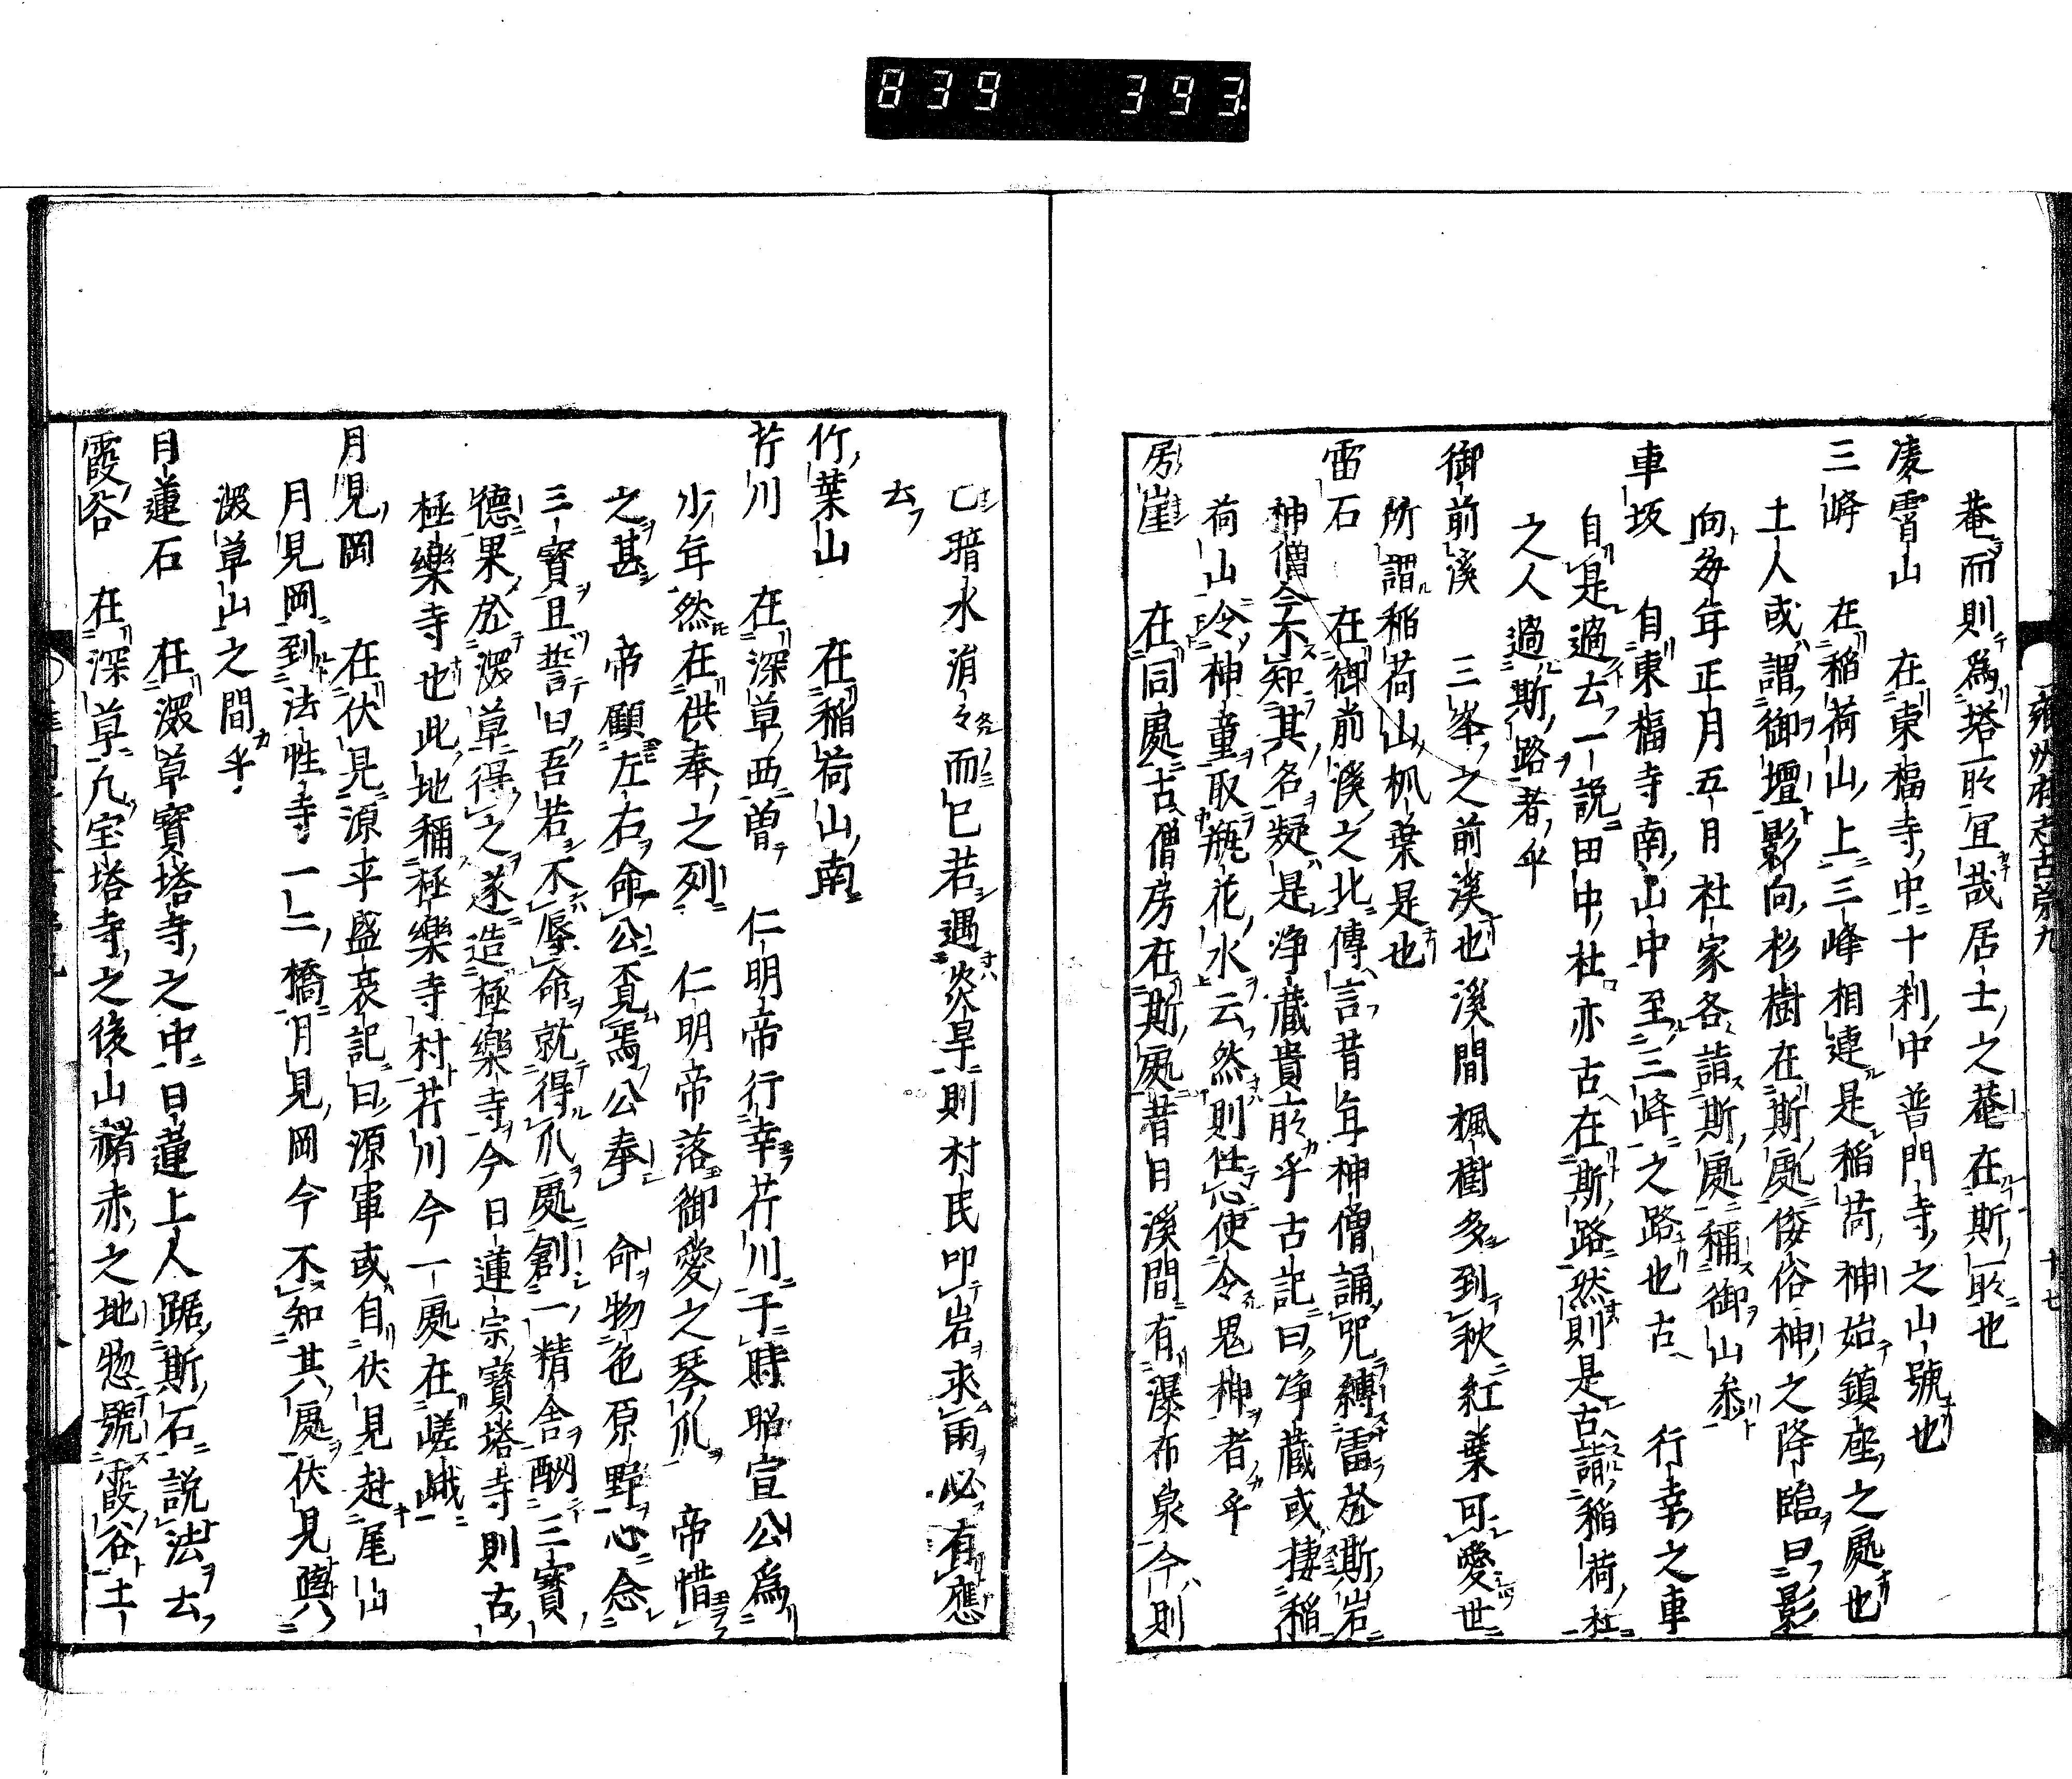 839 393
菴而則爲塔所冝哉居士之菴在斯所也
凌霄山 在東福寺中十刹中普門寺之山號也
三峰 在稲荷山上三峰相連是稲荷神始鎮座之處也
土人或謂御壇影向杉樹在斯處倭俗神之降臨曰影
向毎年正月五日社家各詣斯處稱御山參
車坂 自東福寺南山中至三峰之路也古 行幸之車
自是過去一説田中社亦古在斯路然則是古詣稲荷社
之人過斯路者乎
御前溪 三峯之前溪也溪間楓樹多到秋紅葉可愛世
所謂稲荷山枫葉是也
雷石 在御前溪之北傳言昔年神僧誦咒縛雷於斯岩
神僧今不知其名疑是浄藏貴所乎古記曰浄藏或捿稲
荷山令神童取瓶花水云然則任心使令鬼神者乎
房崖 在同處古僧房在斯處昔日溪間有瀑布泉今則
雍州府志古蹟九
十七
亡暗水涓々而已若遇炎旱則村民叩岩求雨必有應
去
竹葉山 在稲荷山南
芹川 在深草西曽 仁明帝行幸芹川于時昭宣公爲
少年然在供奉之列 仁明帝落御愛之琴爪 帝惜
之甚 帝顧左右命公覓焉公奉 命物色原野心念
三寳且誓曰吾若不辱命就得爪處創一精舎酬三寳
德果於深草得之遂造極樂寺今日蓮宗寳塔寺則古
極樂寺也此地稱極樂寺村芹川今一處在嵯峨
月見岡 在伏見源平盛衰記曰源軍或自伏見赴尾山
月見岡到法性寺一二橋月見岡今不知其處伏見與
深草山之間乎
日蓮石 在深草寳塔寺之中日蓮上人踞斯石説法去
霞谷 在深草凢宝塔寺之後山赭赤之地惣號霞谷土